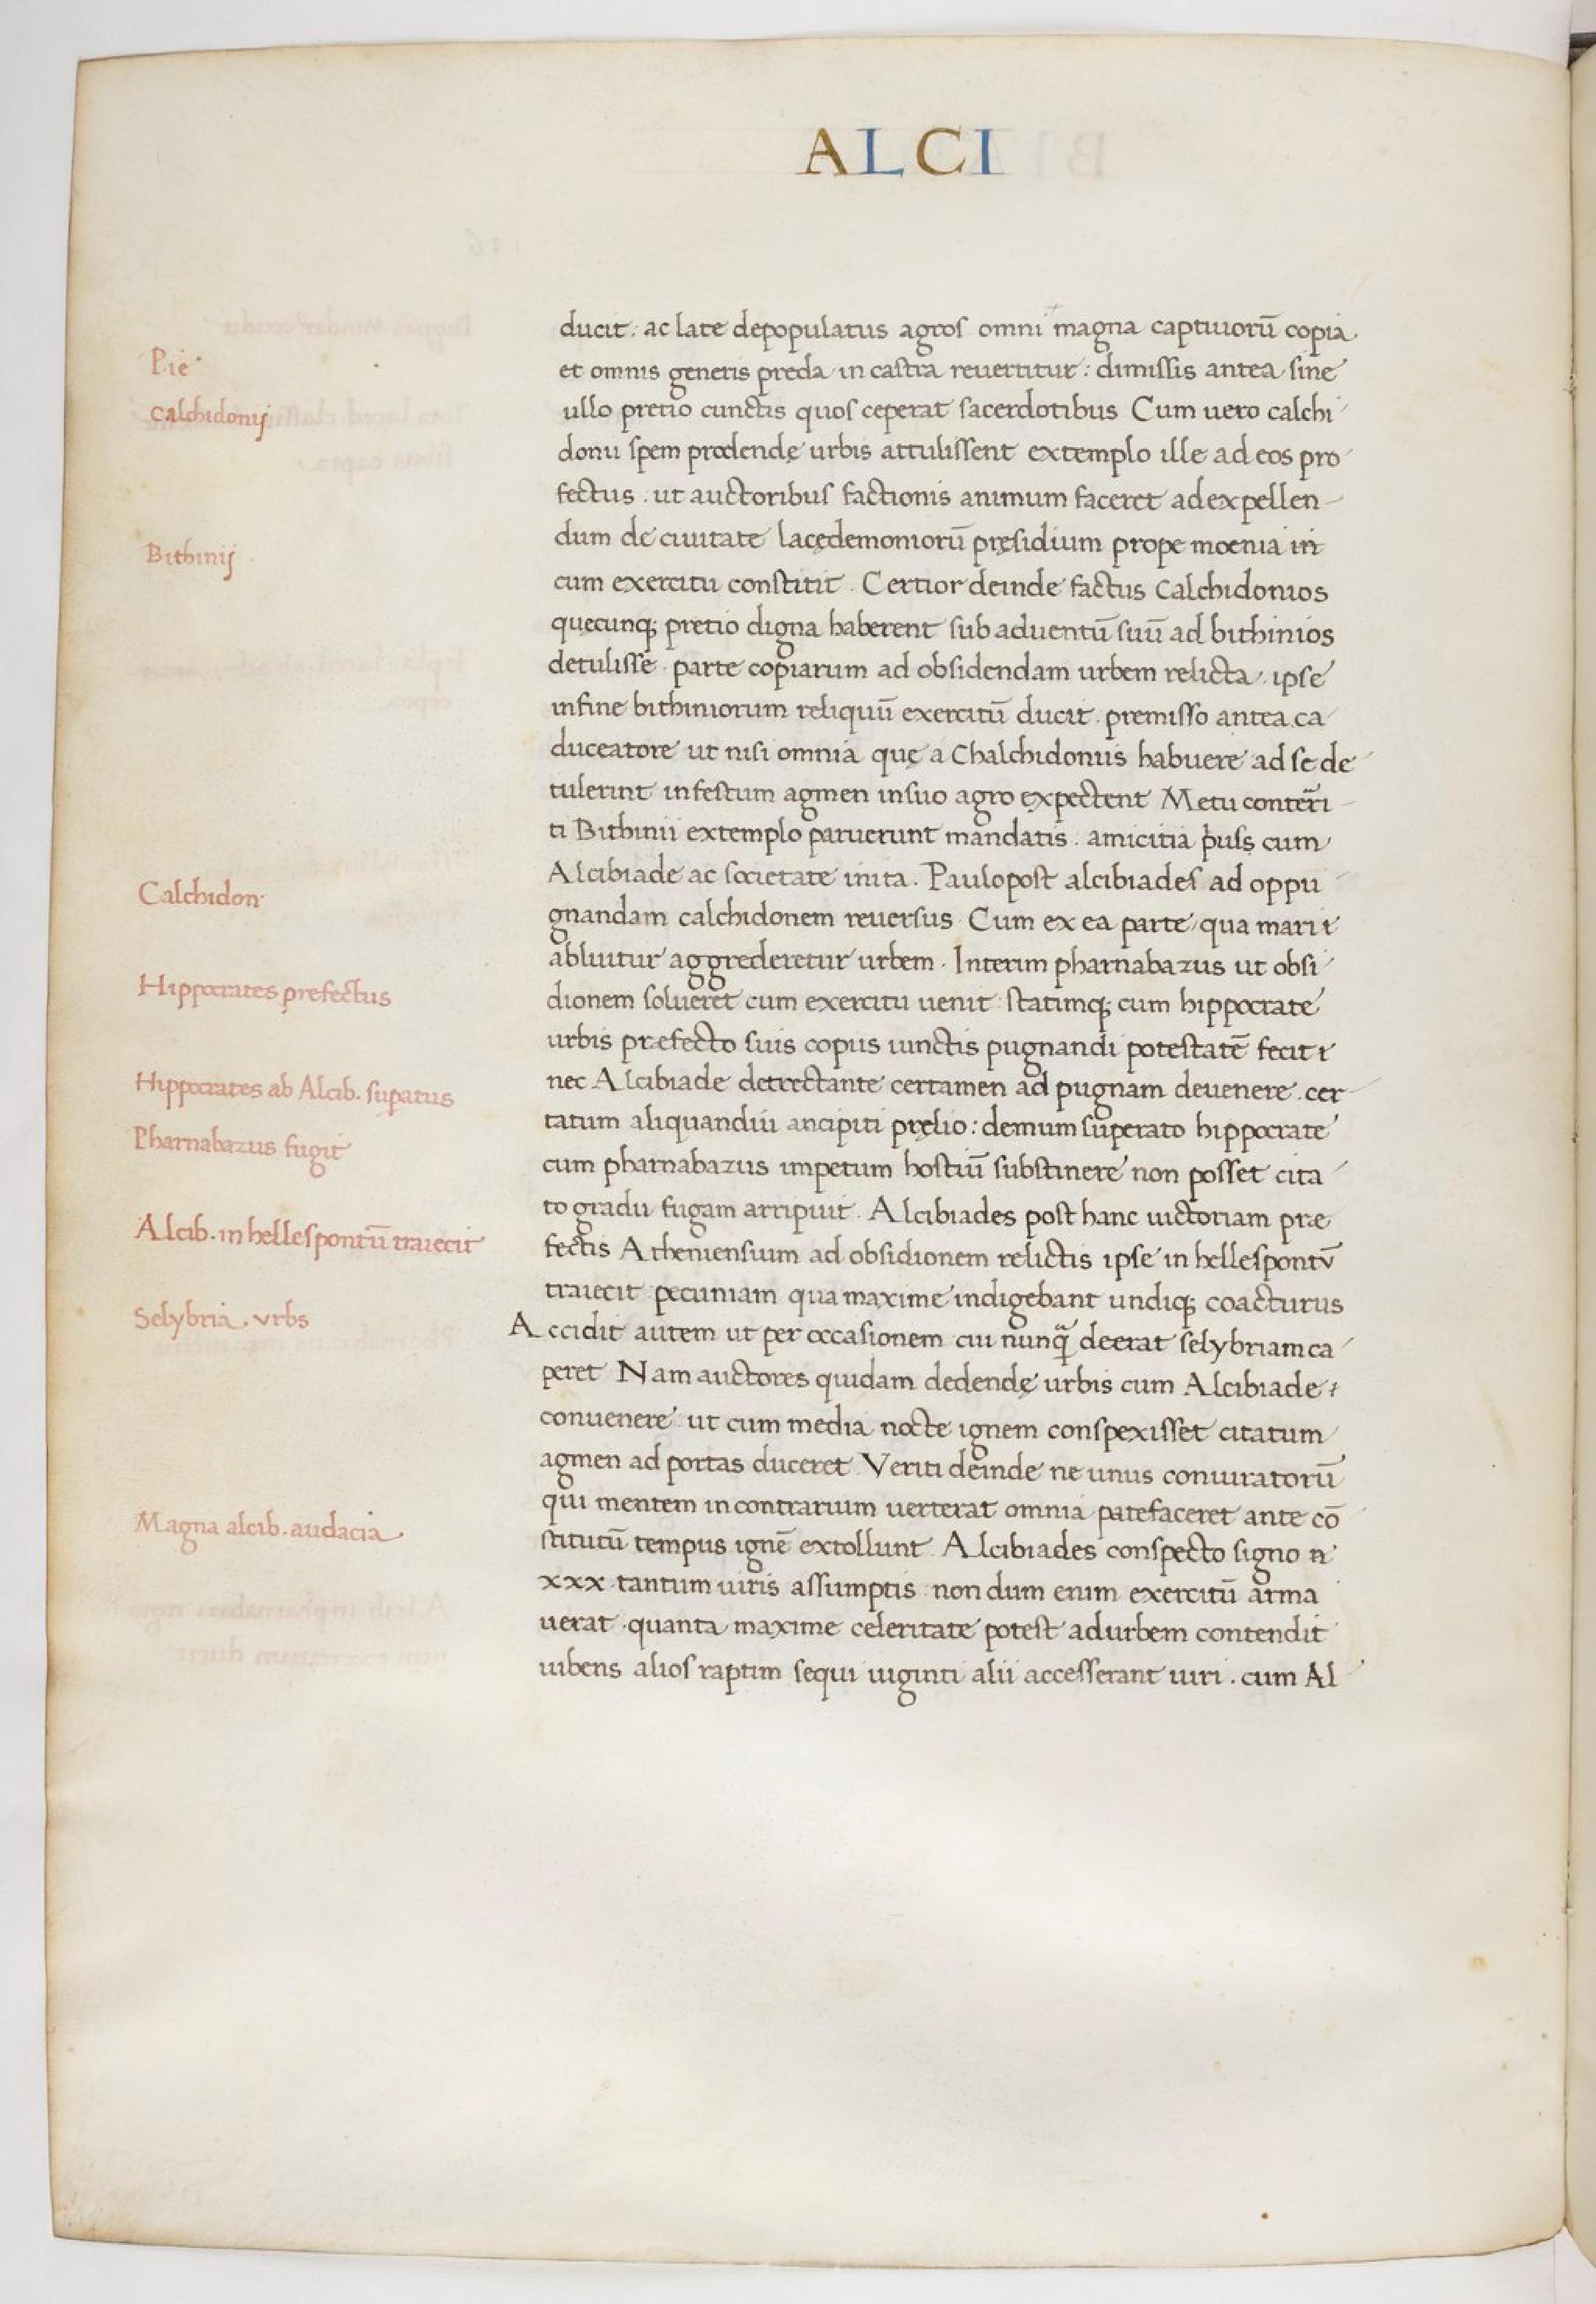 ALCI
ducit. ac late depopulatus agros omni magna captiuorū copia
Pie
et omnis generis preda in castra reuertitur: dimissis antea sine
Calchidonij
ullo pretio cunctis quos ceperat sacerdotibus Cum uero calchi
donii spem prodendę urbis attulissent extemplo ille ad eos pro
fectus. ut auctoribus factionis animum faceret ad expellen
dum de ciuitate lacędemoniorū pręsidium prope moenia
Bithinij
cum exercitu constitit. Certior deinde factus Calchidonios
quęcunq; pretio digna haberent sub aduentū suū ad bithinios
detulisse. parte copiarum ad obsidendam urbem relicta. ipse
in fine bithiniorum reliquū exercitū ducit. premisso antea ca
duceatore ut nisi omnia quę a Chalchidoniis habuere ad se de
tulerint infestum agmen in suo agro expectent Metu conterri
ti Bithinii extemplo paruerunt mandatis. amicitia cum
Alcibiade ac societate inita. Paulopost alcibiades ad oppu
Calchidon
gnandam calchidonem reuersus Cum ex ea parte qua mari
abluitur aggrederetur urbem. Interim pharnabazus ut obsi
Hippocrates prefectus
dionem solueret cum exercitu uenit statimq; cum hippocrate
urbis præfecto suis copiis iunctis pugnandi potestatē fecit
nec Alcibiade detrectante certamen ad pugnam deuenere. cer
Hippocrates ab Alcib. supatus
tatum aliquandiu ancipiti pręlio: demum superato hippocrate
Pharnabazus fugit
cum pharnabazus impetum hostiū substinere non posset cita
to gradu fugam arripuit. Alcibiades post hanc uictoriam præ
Alcib. in hellespontū traiecit
fectis Atheniensium ad obsidionem relictis ipse in hellespontv̄
traiecit pecuniam qua maxime indigebant undiq; coacturus
Selybria. vrbs
Accidit autem ut per occasionem cui nunq̃ deerat selybriam ca
peret Nam auctores quidam dedendę urbis cum Alcibiade
conuenere ut cum media nocte ignem conspexisset citatum
agmen ad portas duceret Veriti deinde ne unus coniuratorū
qui mentem in contrarium uerterat omnia patefaceret ante cō
Magna alcib. audacia
stitutū tempus ignē extollunt Alcibiades conspecto signo
xxx tantum uiris assumptis non dum enim exercitū arma
uerat quanta maxime celeritate potest ad urbem contendit
iubens alios raptim sequi uiginti alii accesserant uiri. cum Al